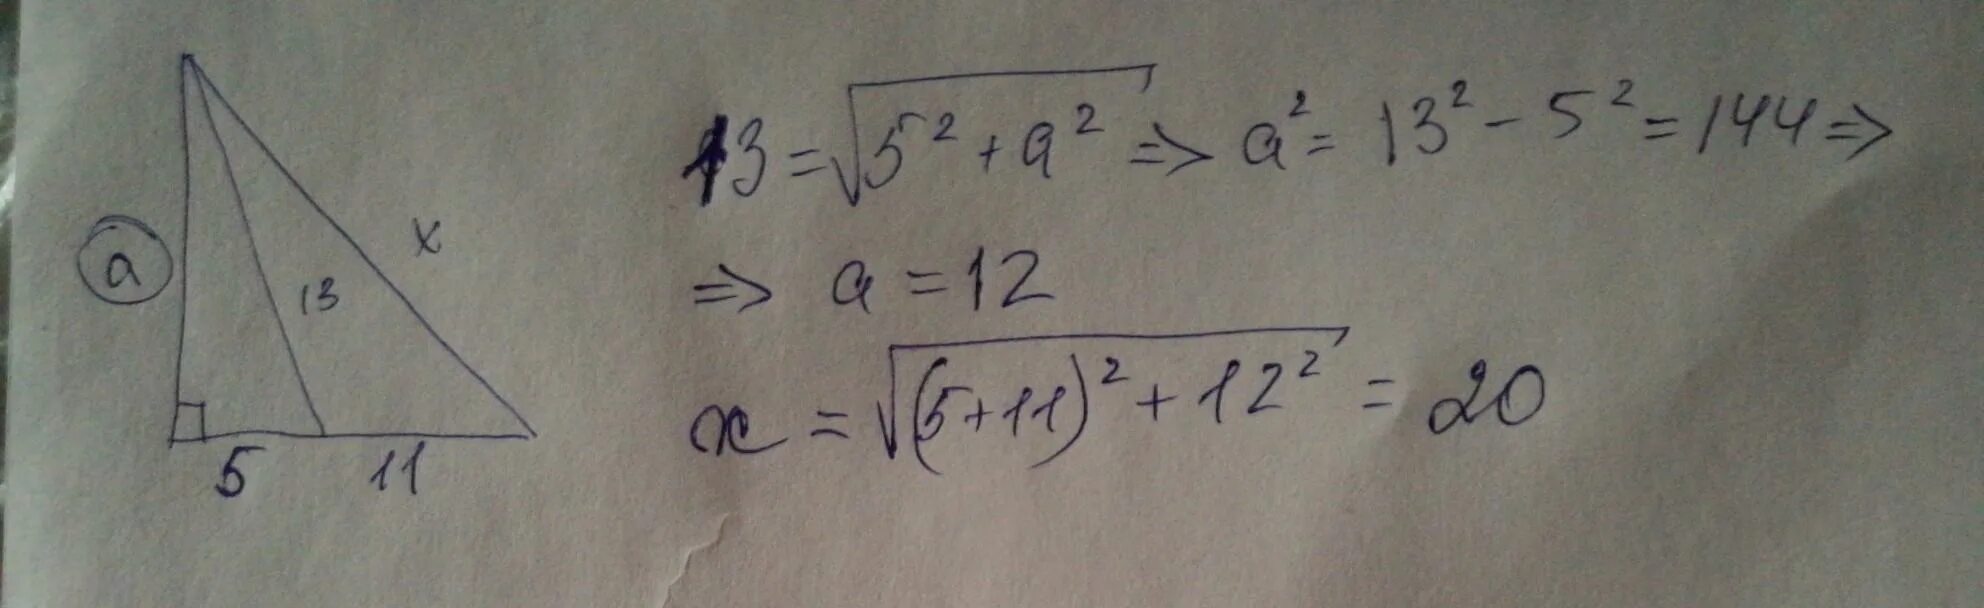 a
x
13
5 11
13 = √(5² + a²) => a² = 13² - 5² = 144 =>
=> a = 12
x = √((5+11)² + 12²) = 20